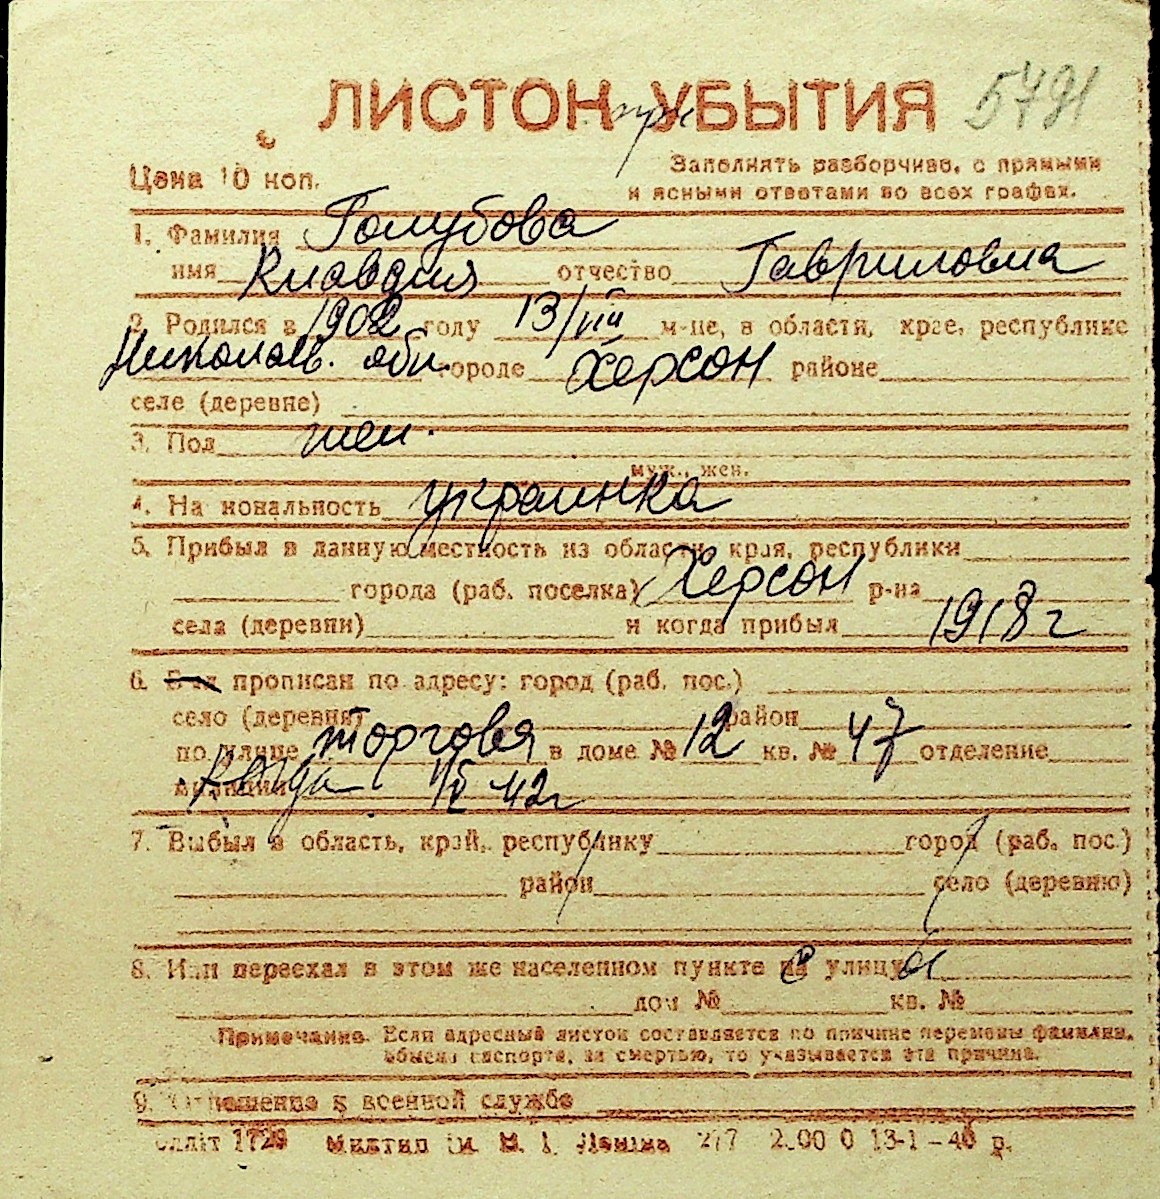 ЛИСТОК при УБЫТИЯ 5791
Цена 10 коп.
Заполнять разборчиво, с прямыми
и ясными ответами во всех графах.
1. Фамилия Голубова
имя Клавдия отчество Гавриловна
2. Родился в 1902 году 13/VIII м-це, в области, крае, республике
Николаев. обл. городе Херсон районе
селе (деревне)
3. Пол жен.
муж., жен.
4. Национальность украинка
5. Прибыл в данную местность из области, края, республики
города (раб. поселка) Херсон р-на
села (деревни) и когда прибыл 1918 г
6. Был прописан по адресу: город (раб. пос.)
село (деревня) район
по улице торговя в доме № 12 кв. № 47 отделение
милиции Когда 42г
7. Выбыл в область, край, республику город (раб. пос.)
район село (деревню)
8. Или переехал в этом же населенном пункте на улицу
дом № кв. №
Примечание. Если адресный листок составляется по причине перемены фамилии,
обмена паспорта, за смертью, то указывается эта причина.
9. Отношение к военной службе
1729 Миктип ім. В. І. Леніна 277 2.00 0 13-1-40 р.